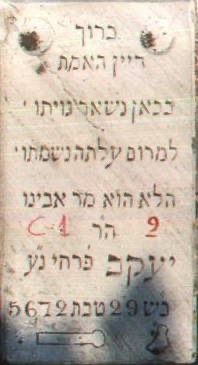 ברוך
דיין האמת
בכאן נשאר גויתו
למרום עלתה נשמתו
הלא הוא מר אבינו
C-1 הר 9
יעקב פרחי נע
כש 29 טבת 5672